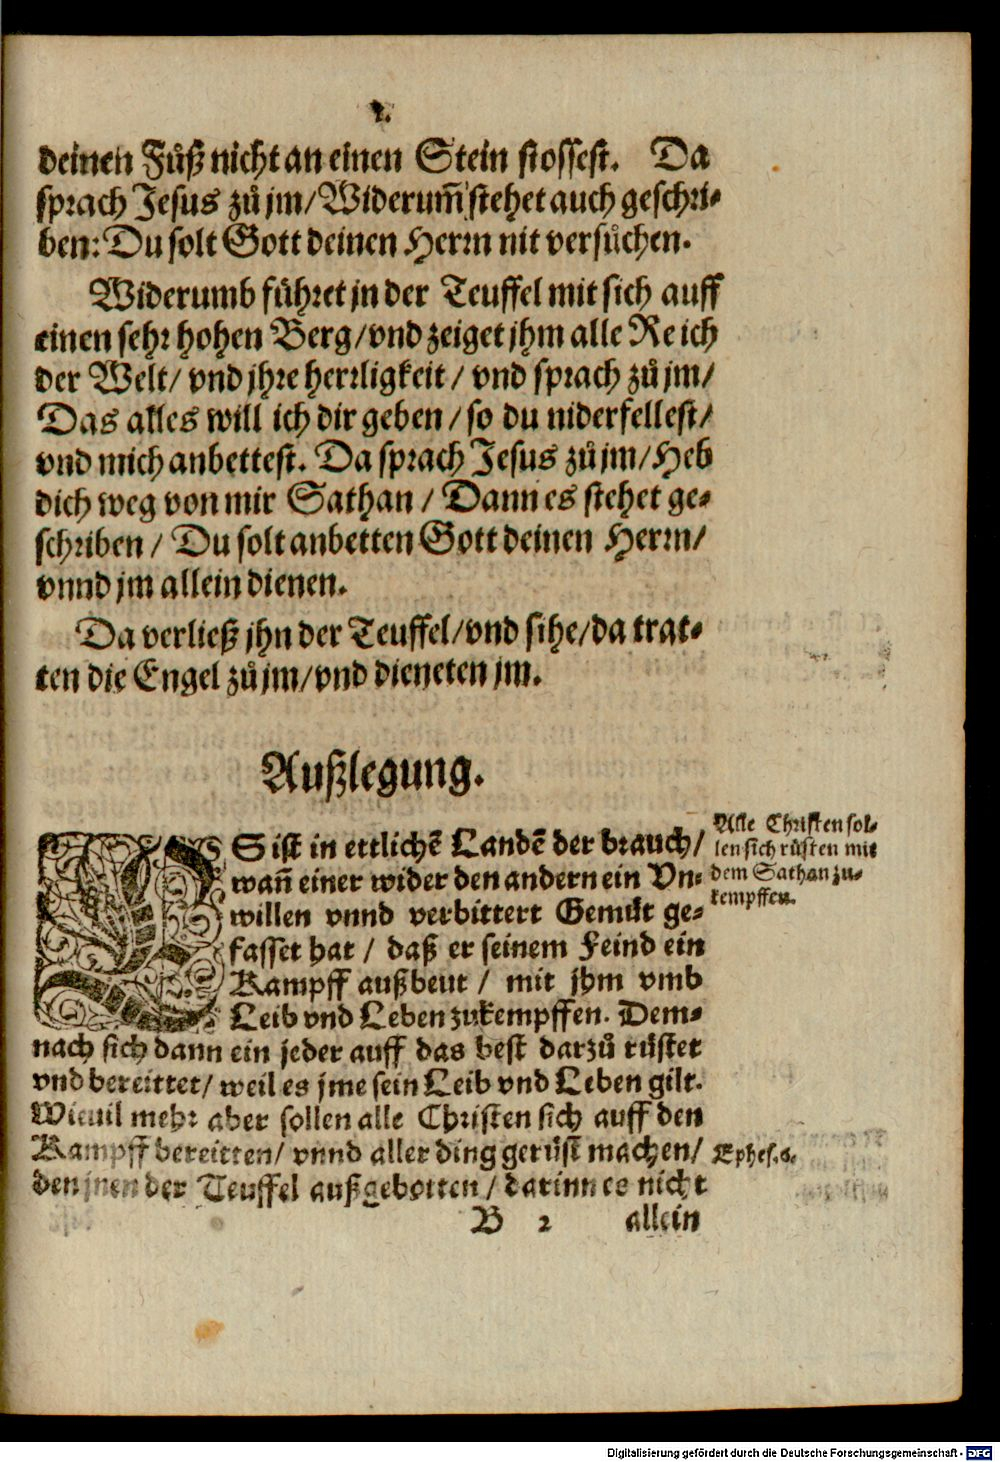 deinen Fůß nicht an einen Stein stossest. Da
sprach Jesus zů jm/ Widerum̃ stehet auch geschri-
ben: Du solt Gott deinen Herrn nit versůchen.
Widerumb führet jn der Teuffel mit sich auff
einen sehr hohen Berg/ vnd zeiget jhm alle Reich
der Welt/ vnd jhre herrligkeit/ vnd sprach zů jm/
Das alles will ich dir geben/ so du niderfellest/
vnd mich anbettest. Da sprach Jesus zů jm/ Heb
dich weg von mir Sathan/ Dann es stehet ge-
schriben/ Du solt anbetten Gott deinen Herrn/
vnnd jm allein dienen.
Da verließ jhn der Teuffel/ vnd sihe/ da trat-
ten die Engel zů jm/ vnd dieneten jm.
Außlegung.
ES ist in ettlichẽ Landẽ der brauch/
wañ einer wider den andern ein Vn-
willen vnnd verbittert Gemüt ge-
fasset hat/ daß er seinem Feind ein
Kampff außbeut/ mit jhm vmb
Leib vnd Leben zukempffen. Dem-
nach sich dann ein jeder auff das best darzů rüstet
vnd bereittet/ weil es jme sein Leib vnd Leben gilt.
Wieuil mehr aber sollen alle Christen sich auff den
Kampff bereitten/ vnnd aller ding gerüst machen/
den jnen der Teuffel außgebotten/ darinn es nicht
B 2 allein
Alle Christen sol-
len sich rüsten mit
dem Sathan zu-
kempffen.
Ephes. 6.
Digitalisierung gefördert durch die Deutsche Forschungsgemeinschaft - DFG